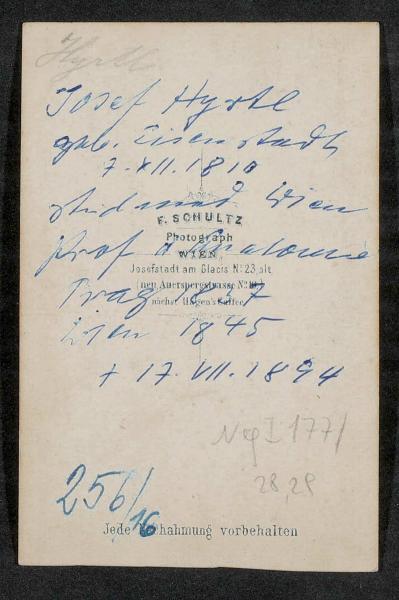 Hyrtl
Josef Hyrtl
geb. Eisenstadt
7. XII. 1810
stud med. Wien
F. SCHULTZ
Photograph
Prof d. Anatomie
WIEN,
Josefstadt am Glacis No. 23 alt
(neu Auerspergstrasse No.
nächst Hagen's Kaffee
Prag 1837
Wien 1845
† 17. VII. 1894
Neg I 177/
28, 29
256/
16
Jede Nachahmung vorbehalten